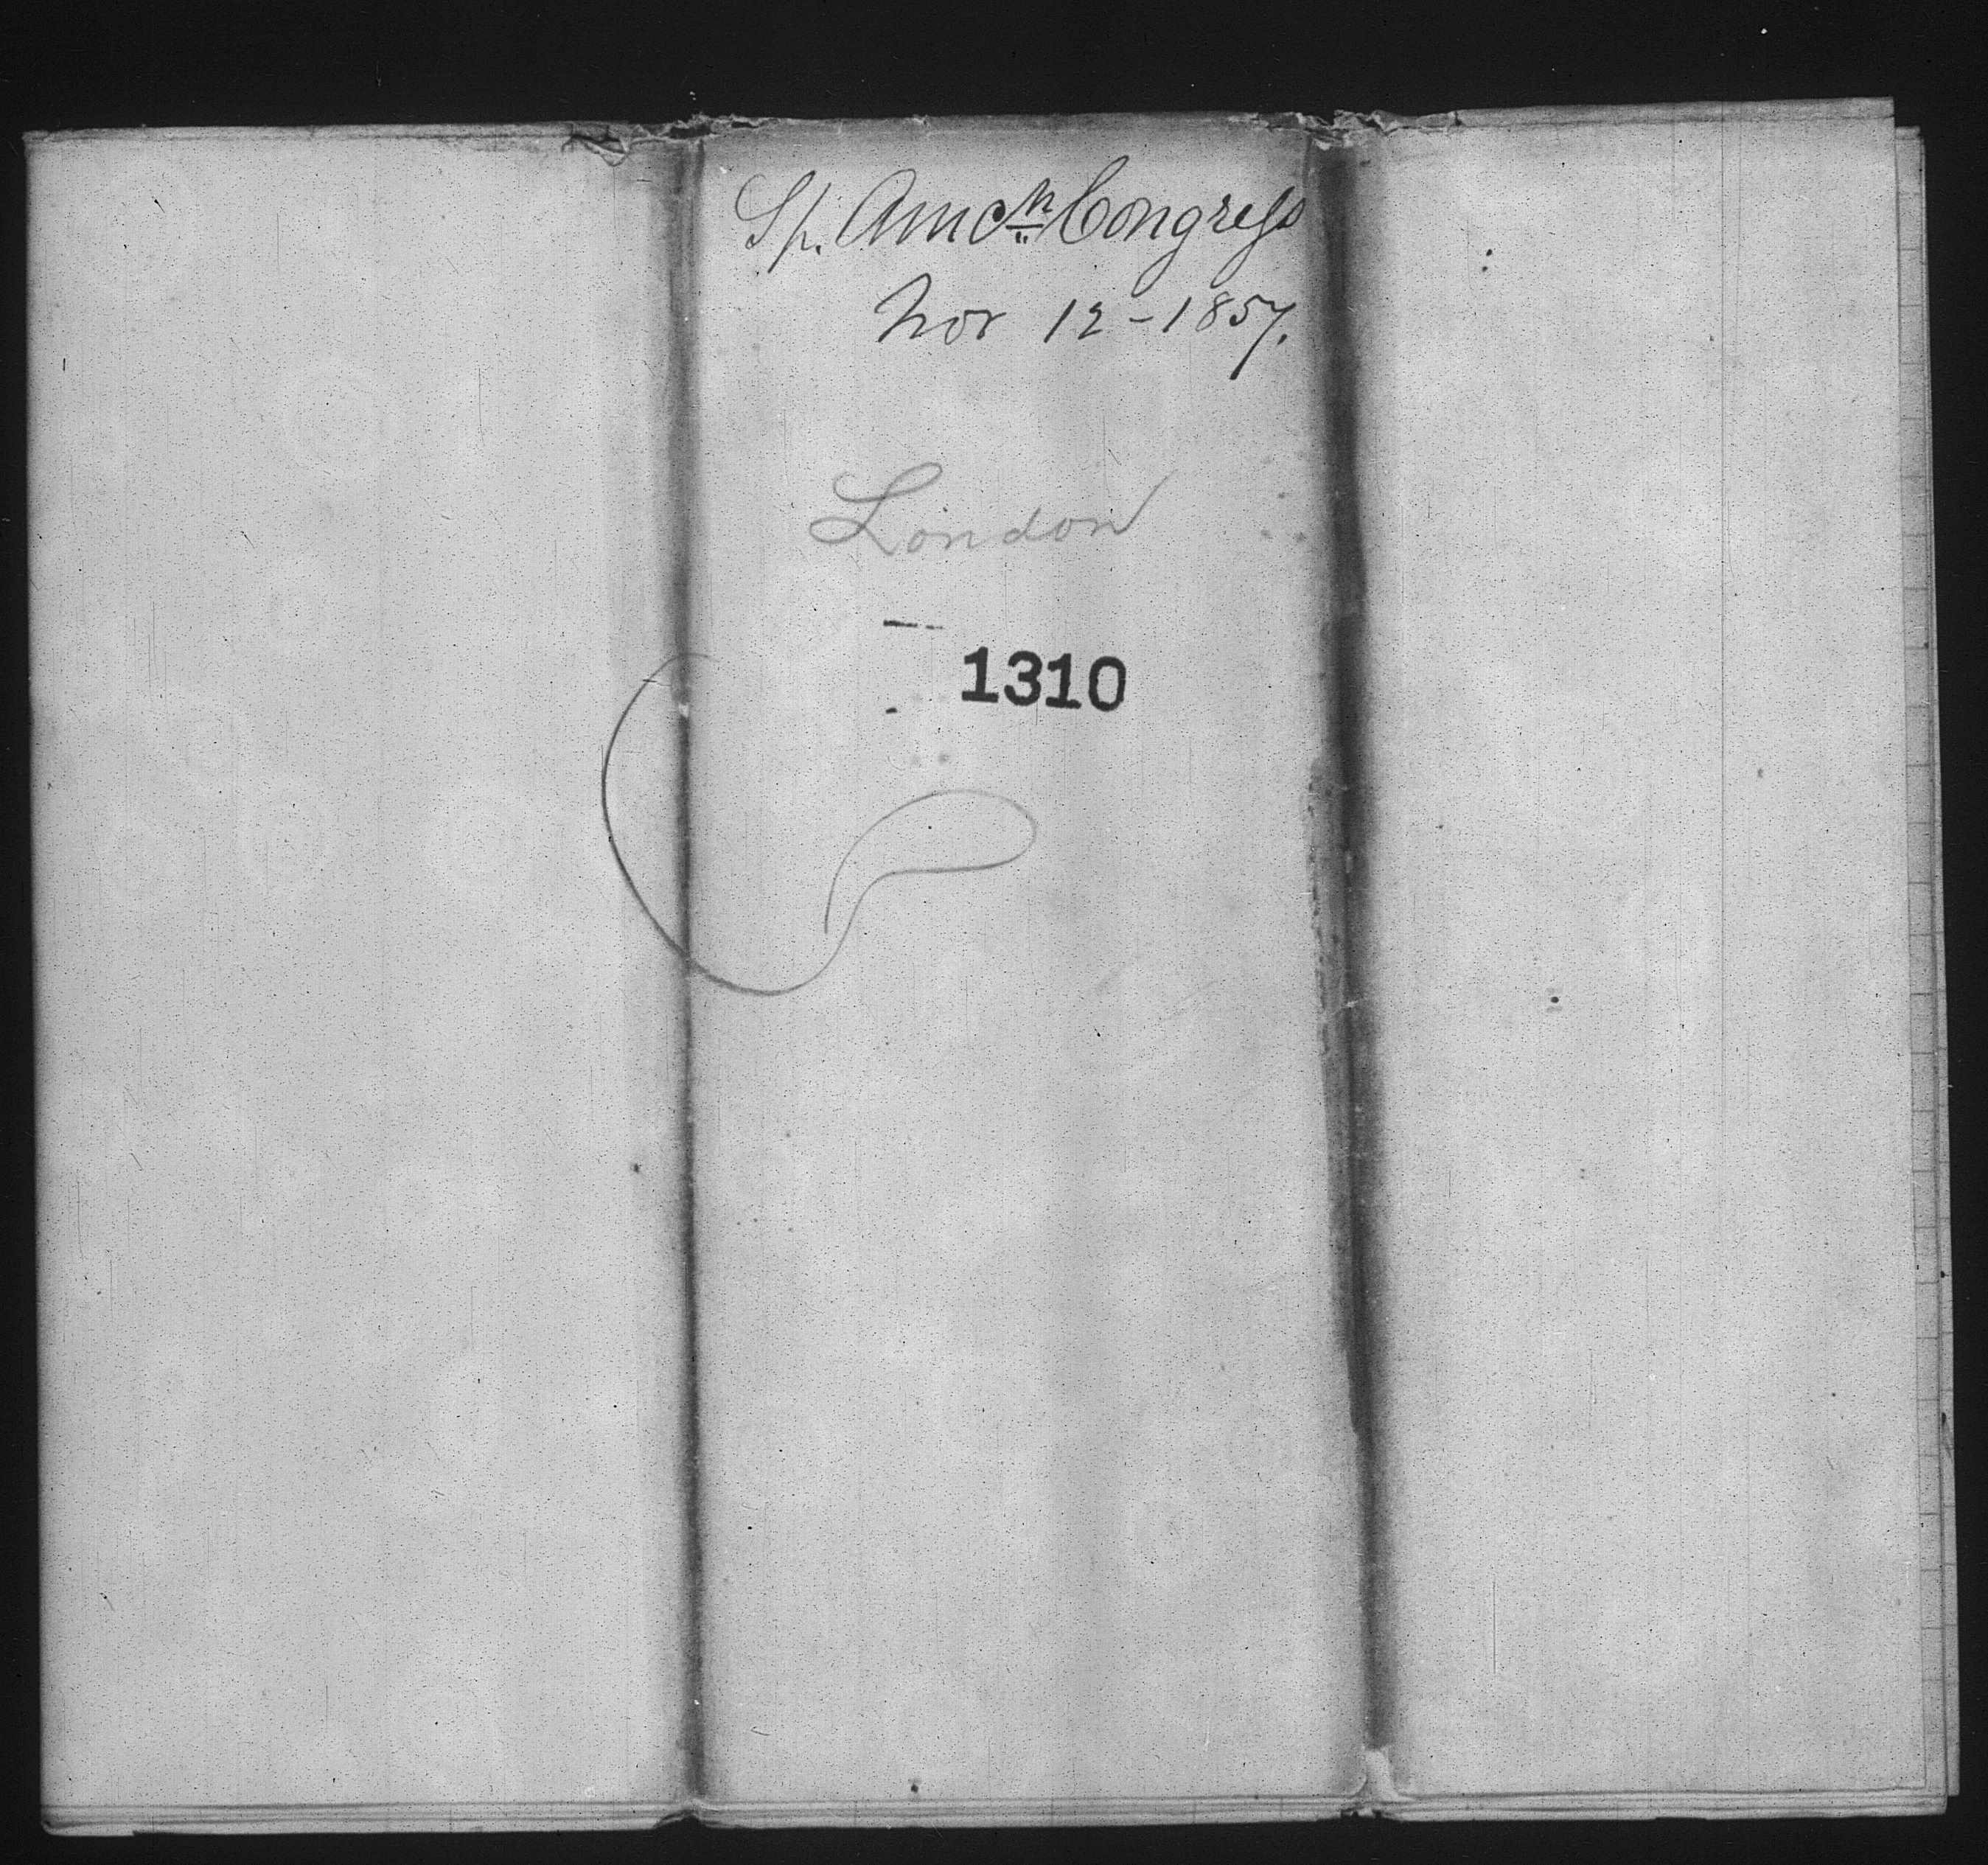 Sp. Amcn Congress
Nov 12-1857.
London
1310